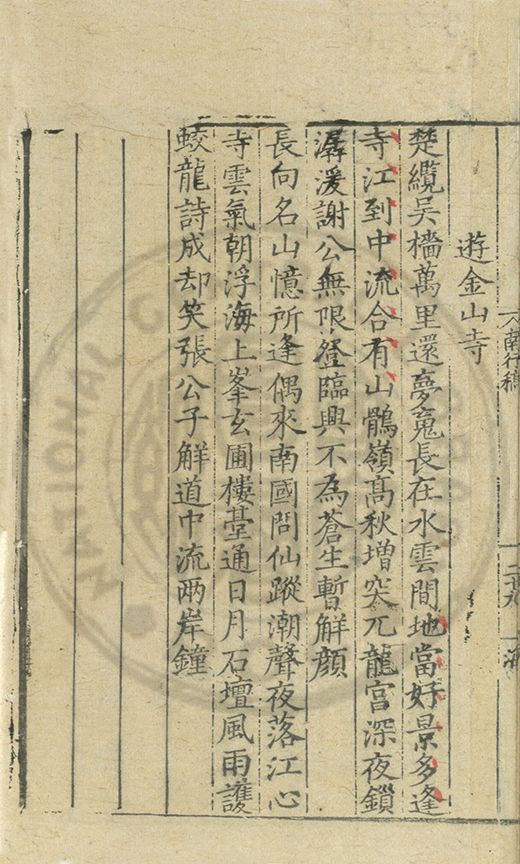 南行稿
二十九
遊金山寺
楚纜吳檣萬里還夢䰟長在水雲間地當好景多逢
寺江到中流合有山鶻嶺髙秋增突兀龍宫深夜鎻
潺湲謝公無限登臨興不為蒼生暫解顔
長向名山憶所逢偶來南國問仙蹤潮聲夜落江心
寺雲氣朝浮海上峯玄圃樓臺通日月石壇風雨護
蛟龍詩成却笑張公子解道中流两岸鐘